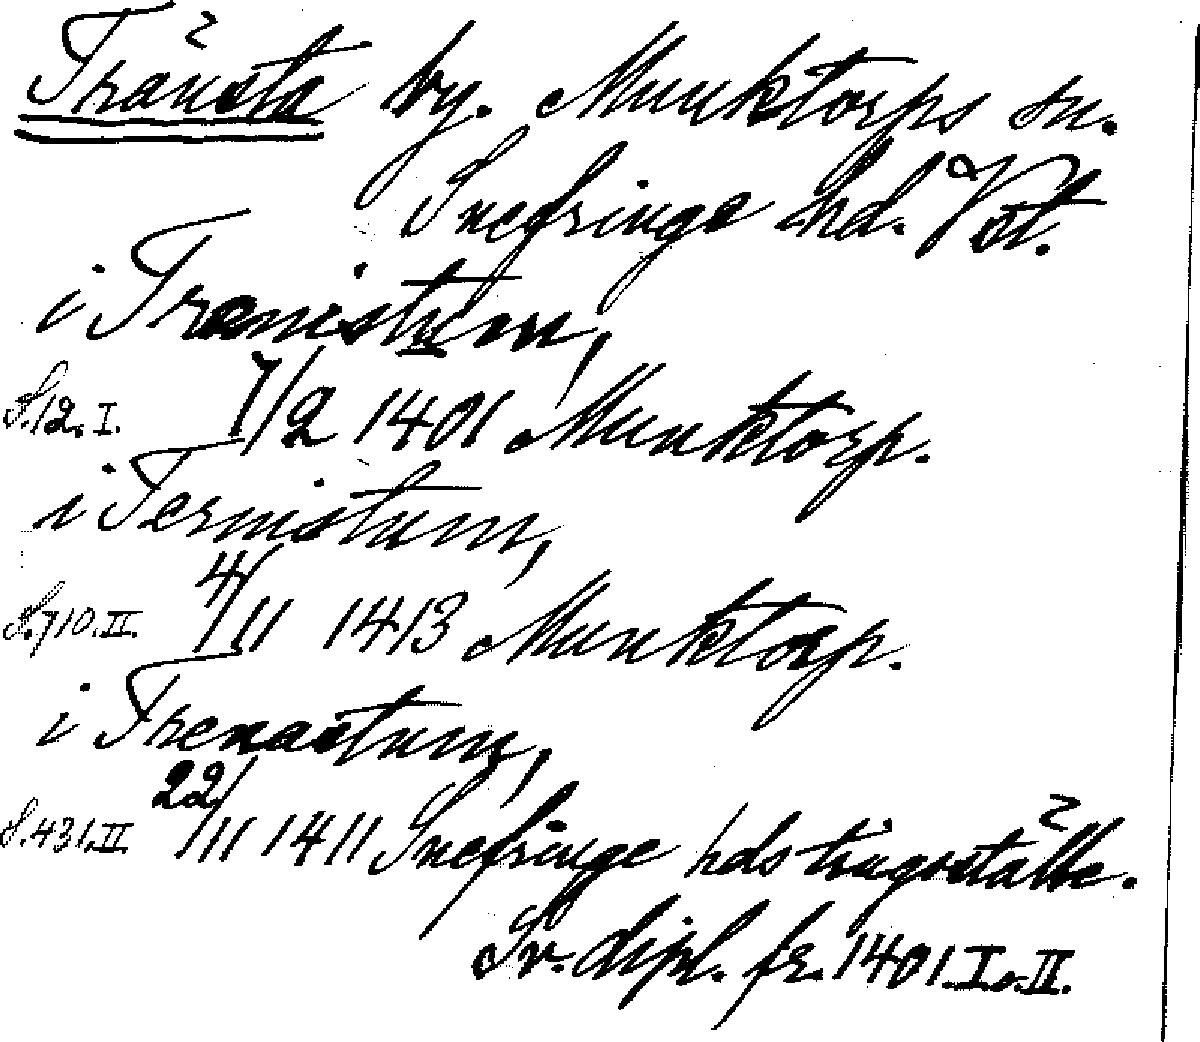 Tränsta by. Munktorps sn.
Snefringe hd. Vstl.
i Trænistum,
S.12.I. 7/2 1401 Munktorp.
i Ternistum,
S.710.II. 4/11 1413 Munktorp.
i Trenastum,
S.431.II. 22/11 1411 Snefringe hds tingställe.
Sv. dipl. fr. 1401. I. o. II.